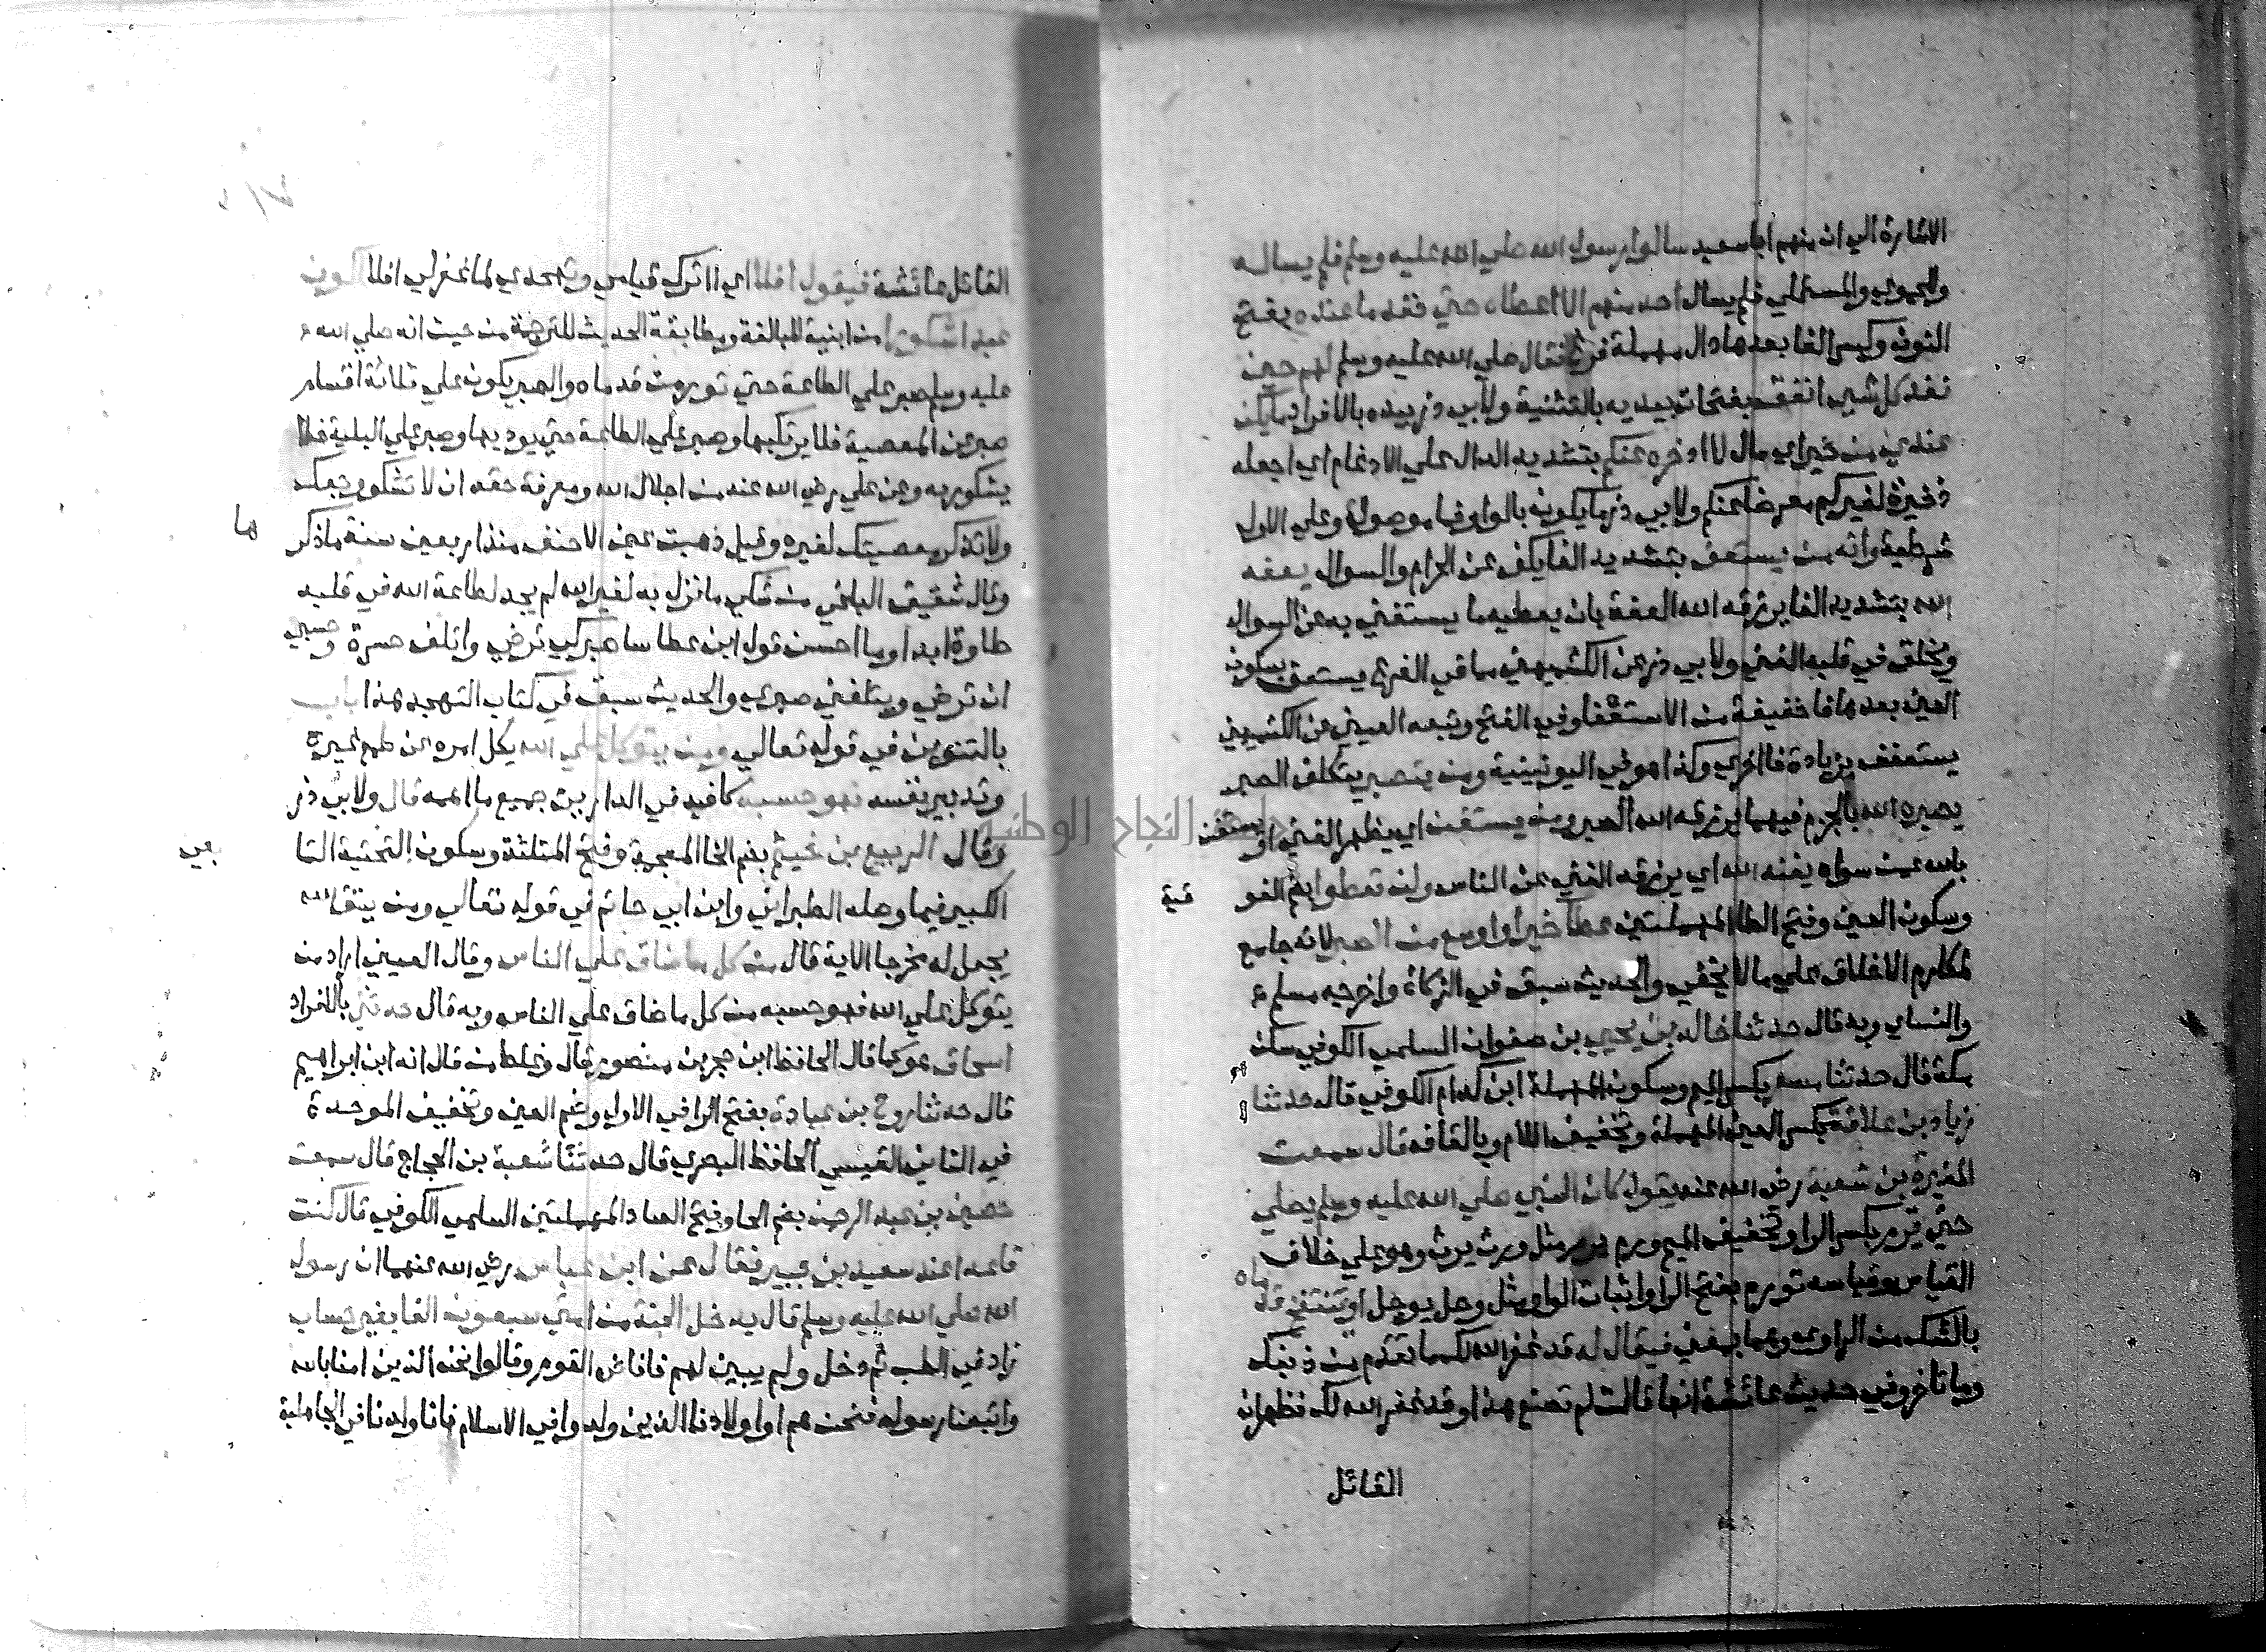 الاشارة الي ان منهم ابا سعيد سالوا رسول الله صلي الله عليه وسلم فلم يساله
والحموي والمستملي فلم يسال احد منهم الا اعطاه حتي نفد ما عنده بفتح
النون وكسر الفا بعدها دال مهملة فرغ فقال صلي الله عليه وسلم لهم حين
نفد كل شي انفق بفتحات بيديه بالتثنية ولابي ذر بيده بالافراد ما يكن
عندي من خير اي مال لا ادخره عنكم بتشديد الدال علي الادغام اي اجعله
ذخيرة لغيركم معرضا عنكم ولابي ذر ما يكون بالواو فما موصولة وعلي الاول
شرطية وانه من يستعف بتشديد الفا يكف عن الحرام والسوال يعفه
الله بتشديد الفا يرزقه الله العفة بان يعطيه ما يستغني به عن السوال
ويخلق في قلبه الغني ولابي ذر عن الكشميهني مما في الفرع يستعف بسكون
العين بعدها فا خفيفة من الاستعفا وفي الفتح وتبعه العيني عن الكشميهني
يستعفف بزيادة فا اخري وكذا هو في اليونينية ومن يتصبر يتكلف الصبر
يصبره الله بالجزم فيهما يرزقه الله الصبر ومن يستغن اي يظهر الغني او يستغن
بالله عمن سواه يغنه الله اي يرزقه الغني عن الناس ولن تعطوا بضم الفو
قية
وسكون العين وفتح الطا المهملتين عطا خيرا واوسع من الصبر لانه جامع
لمكارم الاخلاق علي ما لا يخفي والحديث سبق في الزكاة واخرجه مسلم
والنساي وبه قال حدثنا خالد بن يحيي بن صفوان السلمي الكوفي سكن
مكة قال حدثنا مسعر بكسر الميم وسكون المهملة ابن كدام الكوفي قال حدثنا
زياد بن علاقة بكسر العين المهملة وتخفيف اللام وبالقاف قال سمعت
المغيرة بن شعبة رضي الله عنه يقول كان النبي صلي الله عليه وسلم يصلي
حتي ترم بكسر الرا وتخفيف الميم ورم يرم مثل ورث يرث وهو علي خلاف
القياس وقياسه تورم بفتح الرا واثبات الواو مثل وجل يوجل او تنتفخ قد
ماه
بالشك من الراوي وهما بمعني فيقال له قد غفر الله لك ما تقدم من ذنبك
وما تاخر وفي حديث عائشة انها قالت لم تصنع هذا وقد غفر الله لك فظهر ان
القائل
القائل عائشة فيقول افلا اي ااترك قيامي وتهجدي لما غفر لي افلا اكون
عبدا شكورا من ابنية المبالغة ومطابقة الحديث للترجمة من حيث انه صلي الله
عليه وسلم صبر علي الطاعة حتي تورمت قدماه والصبر يكون علي ثلاثة اقسام
صبر عن المعصية فلا يرتكبها وصبر علي الطاعة حتي يوديها وصبر علي البلية فلا
يشكو ربه وعن علي رضي الله عنه من اجلال الله ومعرفة حقه ان لا تشكو وجعك
ولا تذكر مصيبتك لغيره وقيل ذهبت عين الاحنف منذ اربعين سنة ما ذكر
ها
وقال شقيق البلخي من شكي ما نزل به لغير الله لم يجد لطاعة الله في قلبه
حلاوة ابدا وما احسن قول ابن عطا ساصبر كي ترضي واتلف حسرة وحسبي
ان ترضي ويتلفني صبري والحديث سبق في كتاب التهجد هذا باب
بالتنوين في قوله تعالي ومن يتوكل علي الله يكل امره عن طمع غيره
وتدبير نفسه فهو حسبه كافيه في الدارين جميع ما اهمه قال ولابي ذر
وقال الربيع بن خيثم بضم الخا المعجمة وفتح المثلثة وسكون التحتية التا
بعي
الكبير فيما وصله الطبراني وابن ابي حاتم في قوله تعالي ومن يتق الله
يجعل له مخرجا الاية قال من كل ما ضاق علي الناس وقال العيني اراد من
يتوكل علي الله فهو حسبه من كل ما ضاق علي الناس وبه قال حدثني بالافراد
اسحاق هو كما قال الحافظ ابن حجر بن منصور قال وغلط من قال انه ابن ابراهيم
قال حدثنا روح بن عبادة بفتح الرا في الاول وضم العين وتخفيف الموحدة
في الثاني القيسي الحافظ البصري قال حدثنا شعبة بن الحجاج قال سمعت
حصين بن عبد الرحمن بضم الحا وفتح الصاد المهملتين السلمي الكوفي قال كنت
قاعدا عند سعيد بن جبير فقال عن ابن عباس رضي الله عنهما ان رسول
الله صلي الله عليه وسلم قال يدخل الجنة من امتي سبعون الفا بغير حساب
زاد في الطب ثم دخل ولم يبين لهم فافاض القوم وقالوا نحن الذين امنا بالله
واتبعنا رسوله فنحن هم او اولادنا الذين ولدوا في الاسلام فانا ولدنا في الجاهلية
النجاح الوطنية